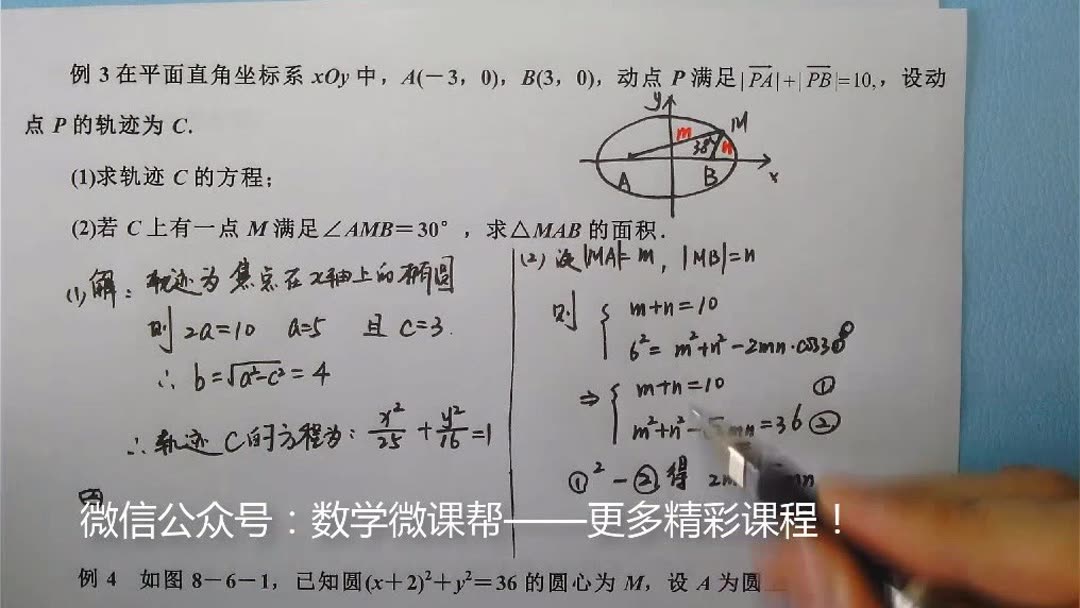 例 3 在平面直角坐标系 xOy 中，A(－3，0)，B(3，0)，动点 P 满足|PA|+|PB|=10,，设动
点 P 的轨迹为 C.
(1)求轨迹 C 的方程；
(2)若 C 上有一点 M 满足∠AMB＝30°，求△MAB 的面积.
y M
m n
38°
A B x
(1) 解：轨迹为焦点在x轴上的椭圆
则 2a=10 a=5 且 c=3.
∴ b=√a²-c²=4
∴ 轨迹C的方程为：x²/25 + y²/16 =1
(2) 设|MA|=m，|MB|=n
则 { m+n=10
6²=m²+n²-2mn·cos30°
⇒ { m+n=10 ①
m²+n²- mn=36 ②
①²-②得 2m mn
微信公众号：数学微课帮——更多精彩课程！
例 4 如图 8－6－1，已知圆(x＋2)²＋y²＝36 的圆心为 M，设 A 为圆